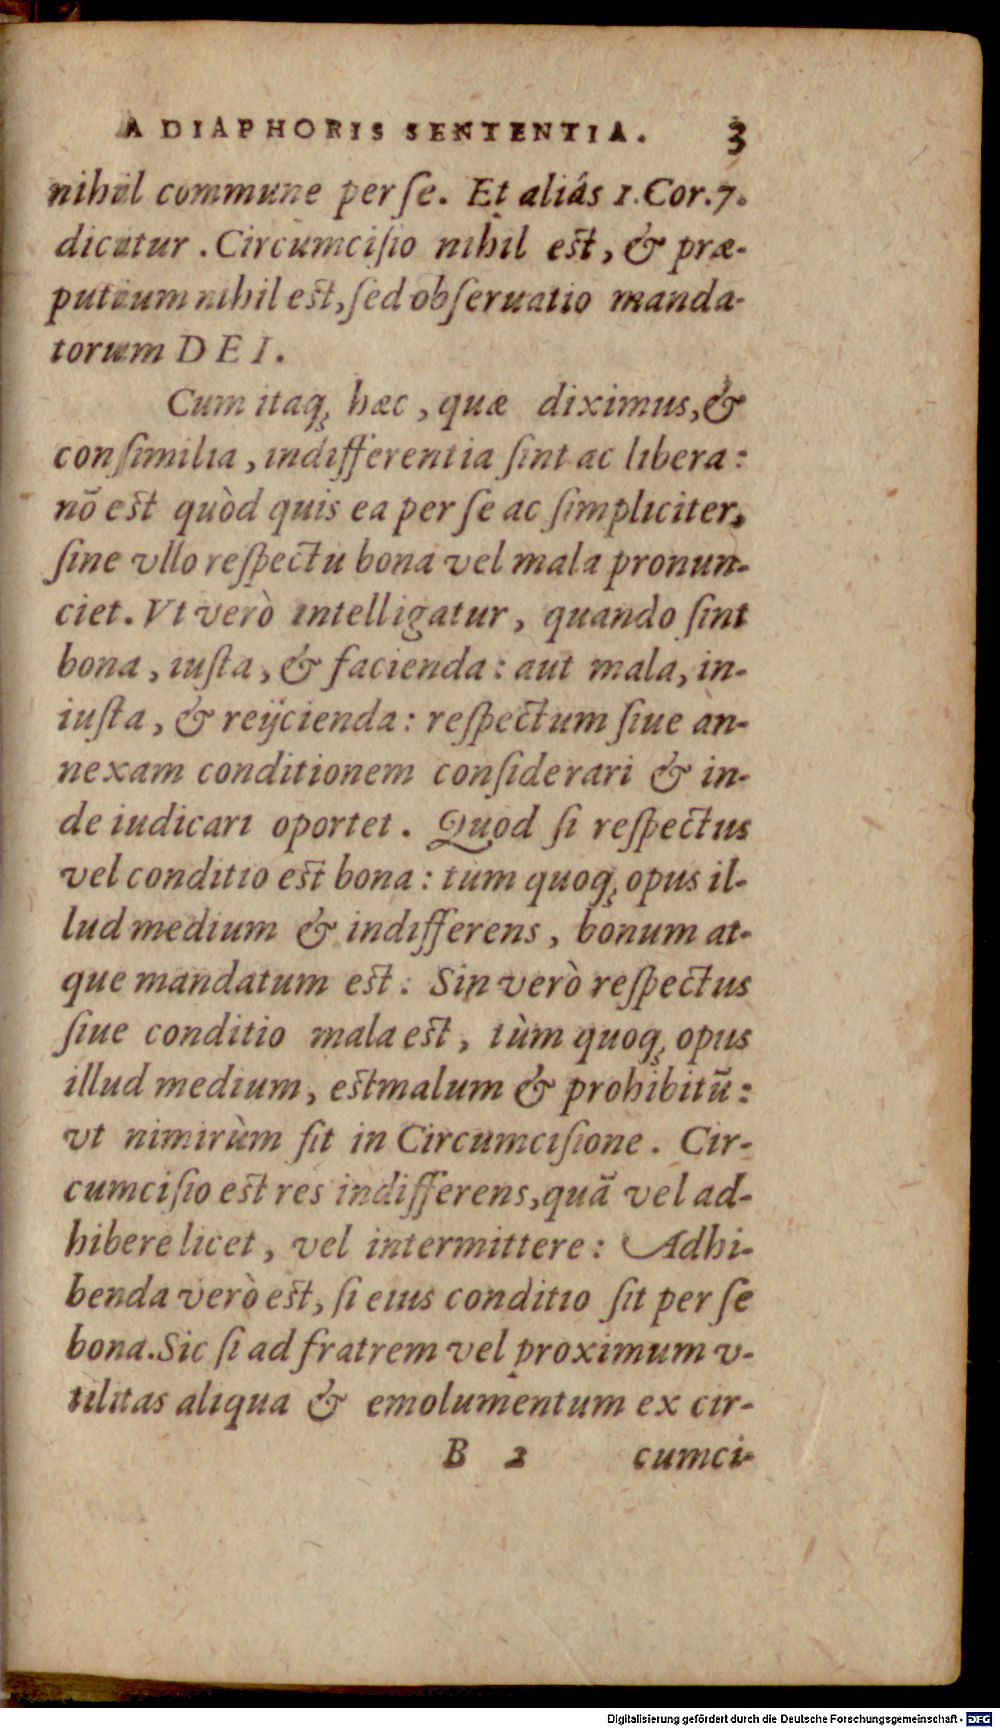 ADIAPHORIS SENTENTIA. 3
nihil commune per ſe. Et aliâs 1. Cor. 7.
dicatur . Circumciſio nihil est, & præ-
putium nihil est, ſed obſeruatio manda-
torum DEI.
Cum itaq; hæc , quæ diximus, &
conſimilia , indifferentia ſint ac libera:
nō est quòd quis ea per ſe ac ſimpliciter,
ſine vllo reſpectu bona vel mala pronun-
ciet. Vt verò intelligatur , quando ſint
bona , iuſta , & facienda : aut mala, in-
iuſta , & reijcienda : reſpectum ſiue an-
nexam conditionem conſiderari & in-
de iudicari oportet . Quod ſi reſpectus
vel conditio est bona : tum quoq; opus il-
lud medium & indifferens , bonum at-
que mandatum est . Sin verò reſpectus
ſiue conditio mala est , tùm quoq; opus
illud medium , est malum & prohibitū:
vt nimirùm fit in Circumciſione . Cir-
cumciſio est res indifferens, quā vel ad-
hibere licet , vel intermittere : Adhi-
benda verò est, ſi eius conditio ſit per ſe
bona. Sic ſi ad fratrem vel proximum v-
tilitas aliqua & emolumentum ex cir-
B 2 cumci-
Digitalisierung gefördert durch die Deutsche Forschungsgemeinschaft - DFG